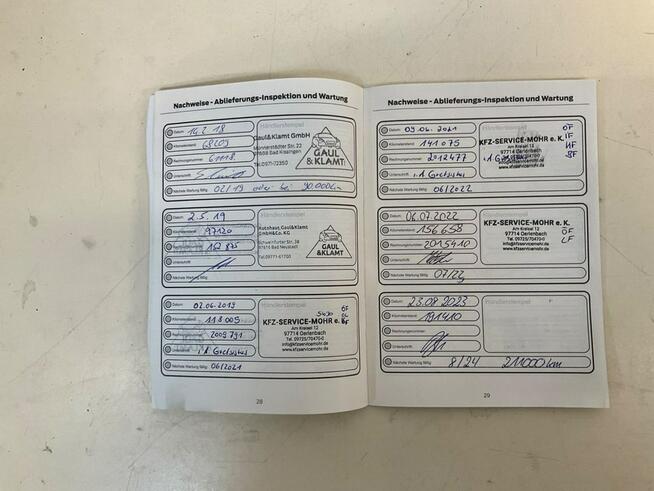 Nachweise - Ablieferungs-Inspektion und Wartung
Händlerstempel
Datum 14.2.18
Kilometerstand 68209
Rechnungsnummer 61118
Unterschrift
Gaul&Klamt GmbH
Münnerstädter Str. 22
97688 Bad Kissingen
Tel.0971-72350
GAUL
&KLAMT
Nächste Wartung fällig 02/19 oder bei 90.000km
Händlerstempel
Datum 2.5.19
Kilometerstand 97120
Rechnungsnummer 162 875
Unterschrift
Autohaus Gaul&Klamt
GmbH&Co. KG
Schweinfurter Str. 38
97616 Bad Neustadt
Tel.09771-61700
GAUL
&KLAMT
Nächste Wartung fällig
Händlerstempel
Datum 02.06.2019
Kilometerstand 118009
Rechnungsnummer 2009791
Unterschrift
ÖF
KFZ-SERVICE-MOHR e. K.
Am Kreisel 12
97714 Oerlenbach
Tel. 09725/70470-0
info@kfzservicemohr.de
www.kfzservicemohr.de
Nächste Wartung fällig 06/2021
28
Nachweise - Ablieferungs-Inspektion und Wartung
Händlerstempel
Datum 09.06.2021
Kilometerstand 141 075
Rechnungsnummer 2012477
Unterschrift
ÖF
IF
KFZ-SERVICE-MOHR e. K.
Am Kreisel 12
97714 Oerlenbach
Nächste Wartung fällig 06/2022
Händlerstempel
Datum 06.07.2022
Kilometerstand 156 658
Rechnungsnummer 2015410
Unterschrift
KFZ-SERVICE-MOHR e. K.
Am Kreisel 12
97714 Oerlenbach
Tel. 09725/70470-0
info@kfzservicemohr.de
www.kfzservicemohr.de
ÖF
LF
Nächste Wartung fällig 07/23
Händlerstempel
Datum 23.08.2023
Kilometerstand 191410
Rechnungsnummer
Unterschrift
Nächste Wartung fällig 8/24 211000 km
29